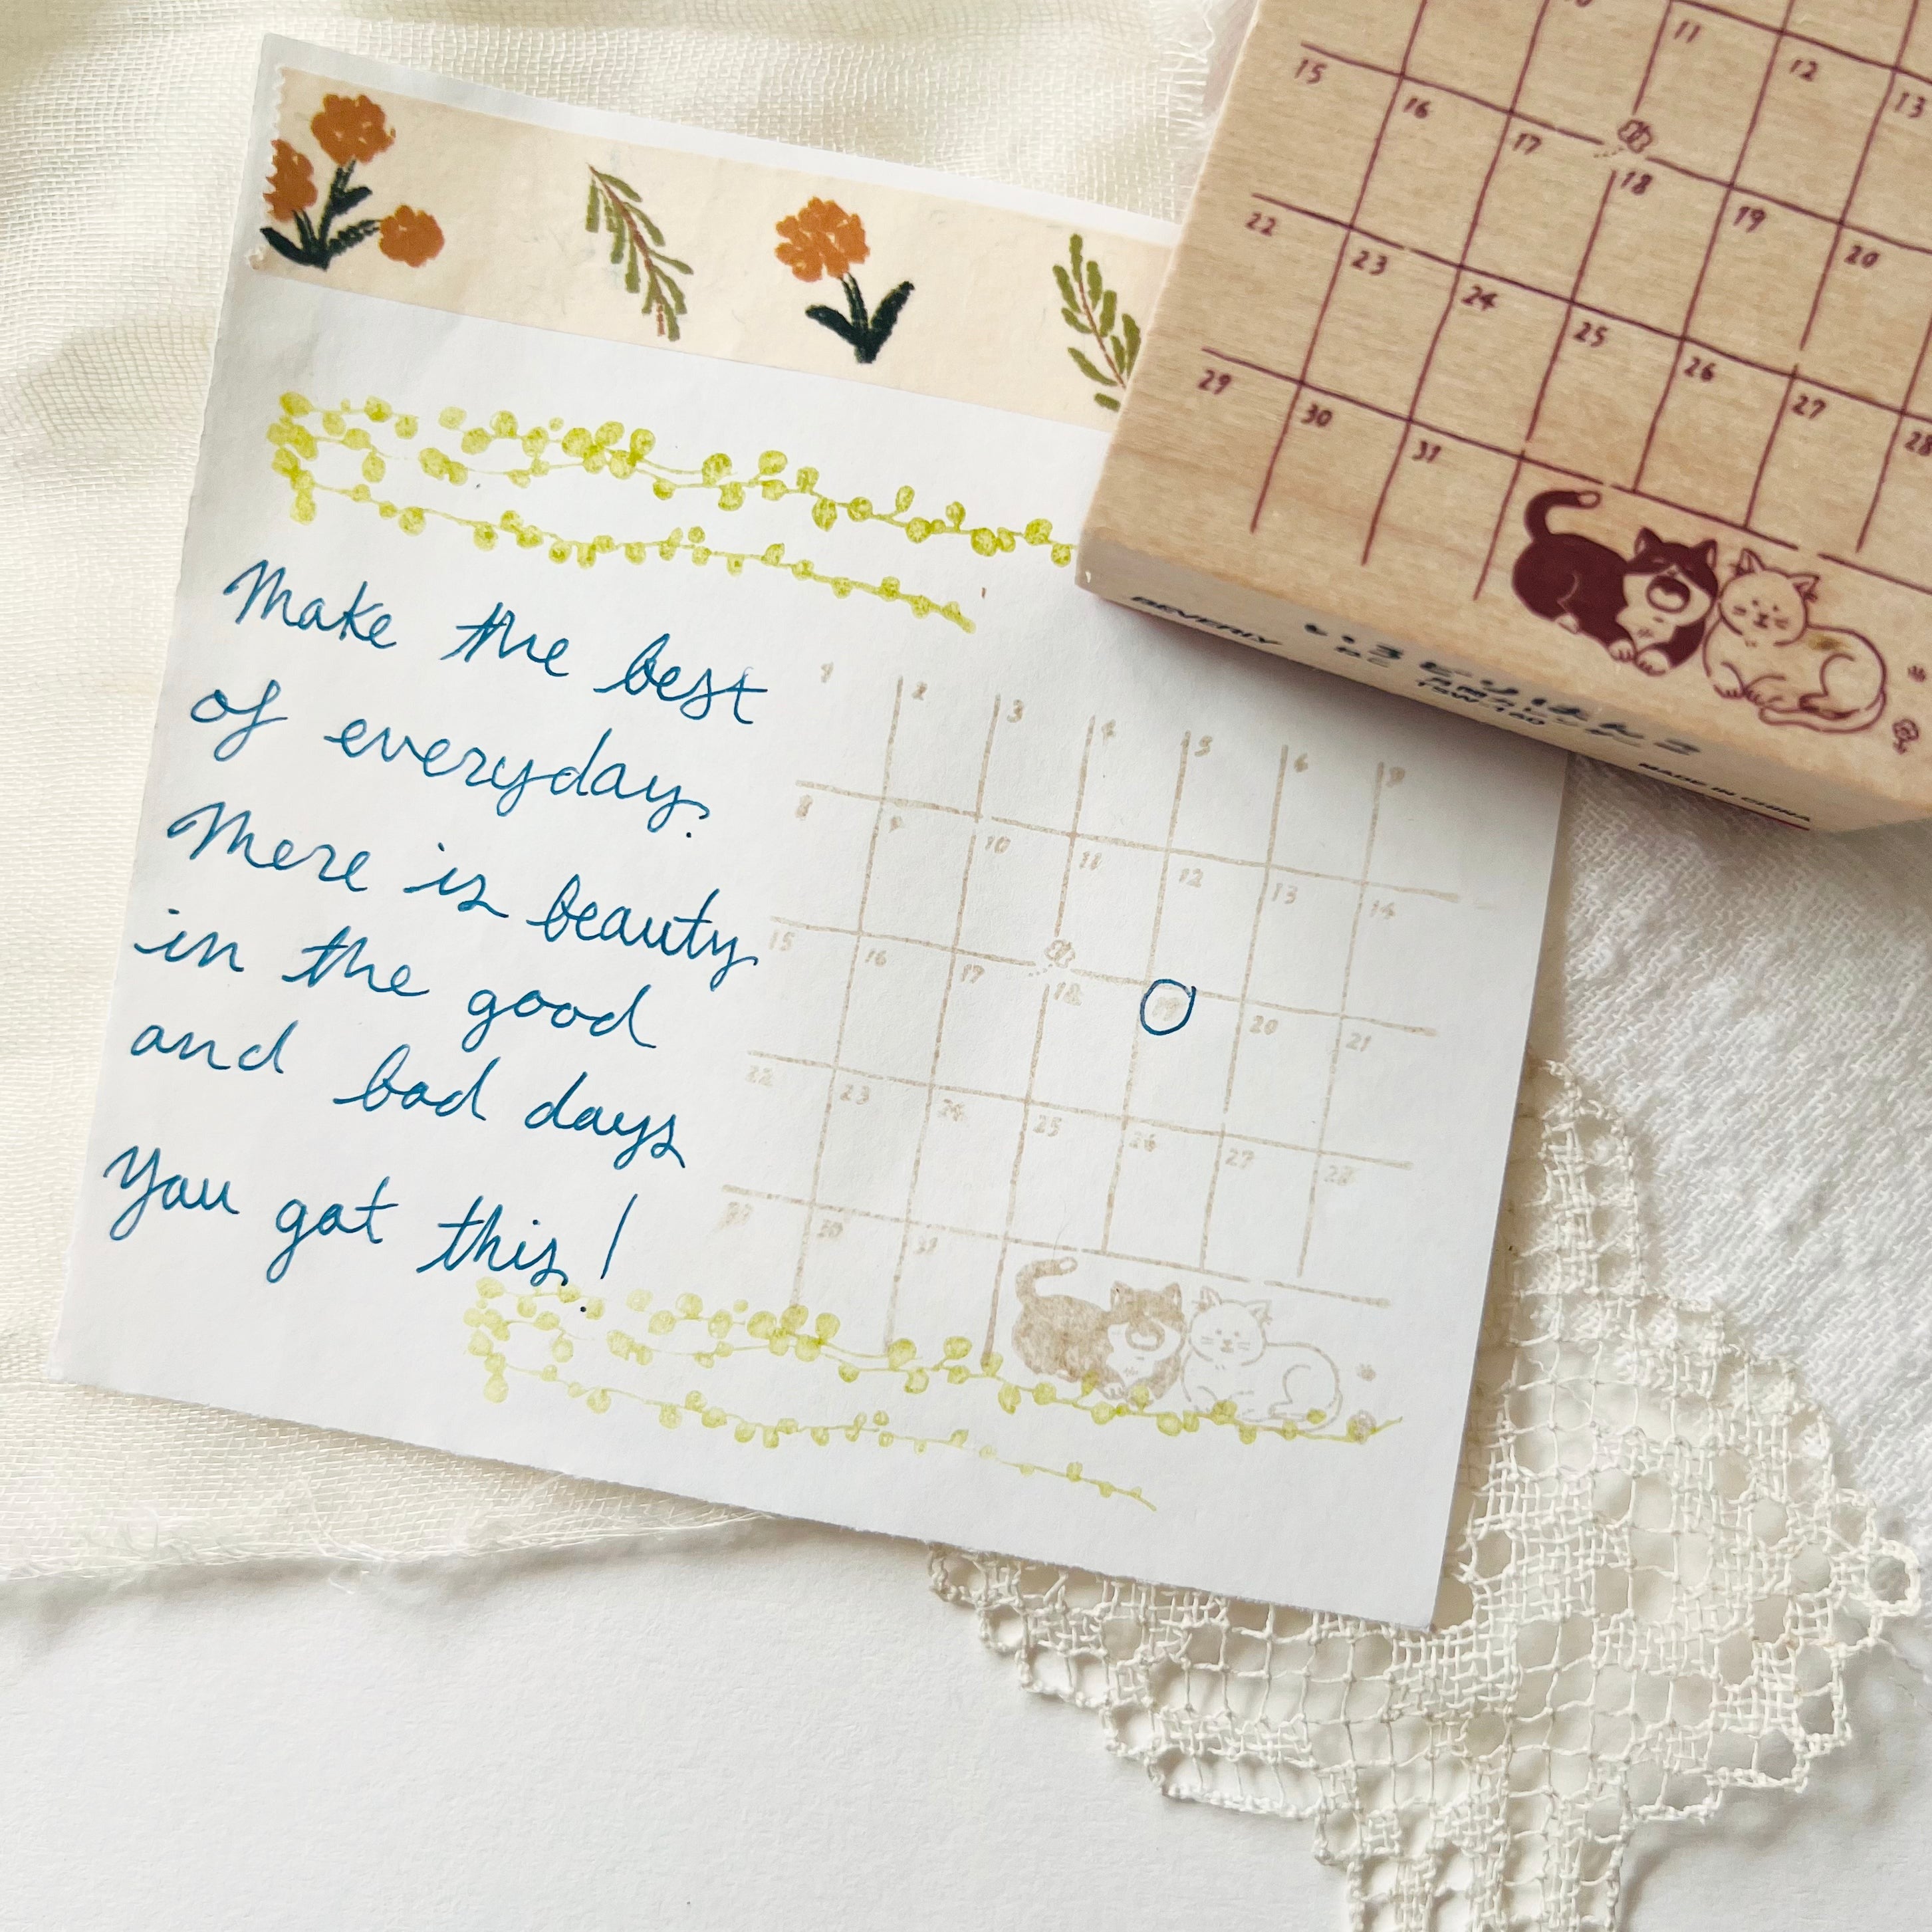 Make the best
of everyday.
There is beauty
in the good
and bad days
You got this!
1 2 3 4 5 6 7
8 9 10 11 12 13 14
15 16 17 18 19 20 21
22 23 24 25 26 27 28
29 30 31
11 12 13
15 16 17 18 19 20
22 23 24 25 26 27 28
29 30 31
BEVERLY
TSW-160
MADE IN CHINA